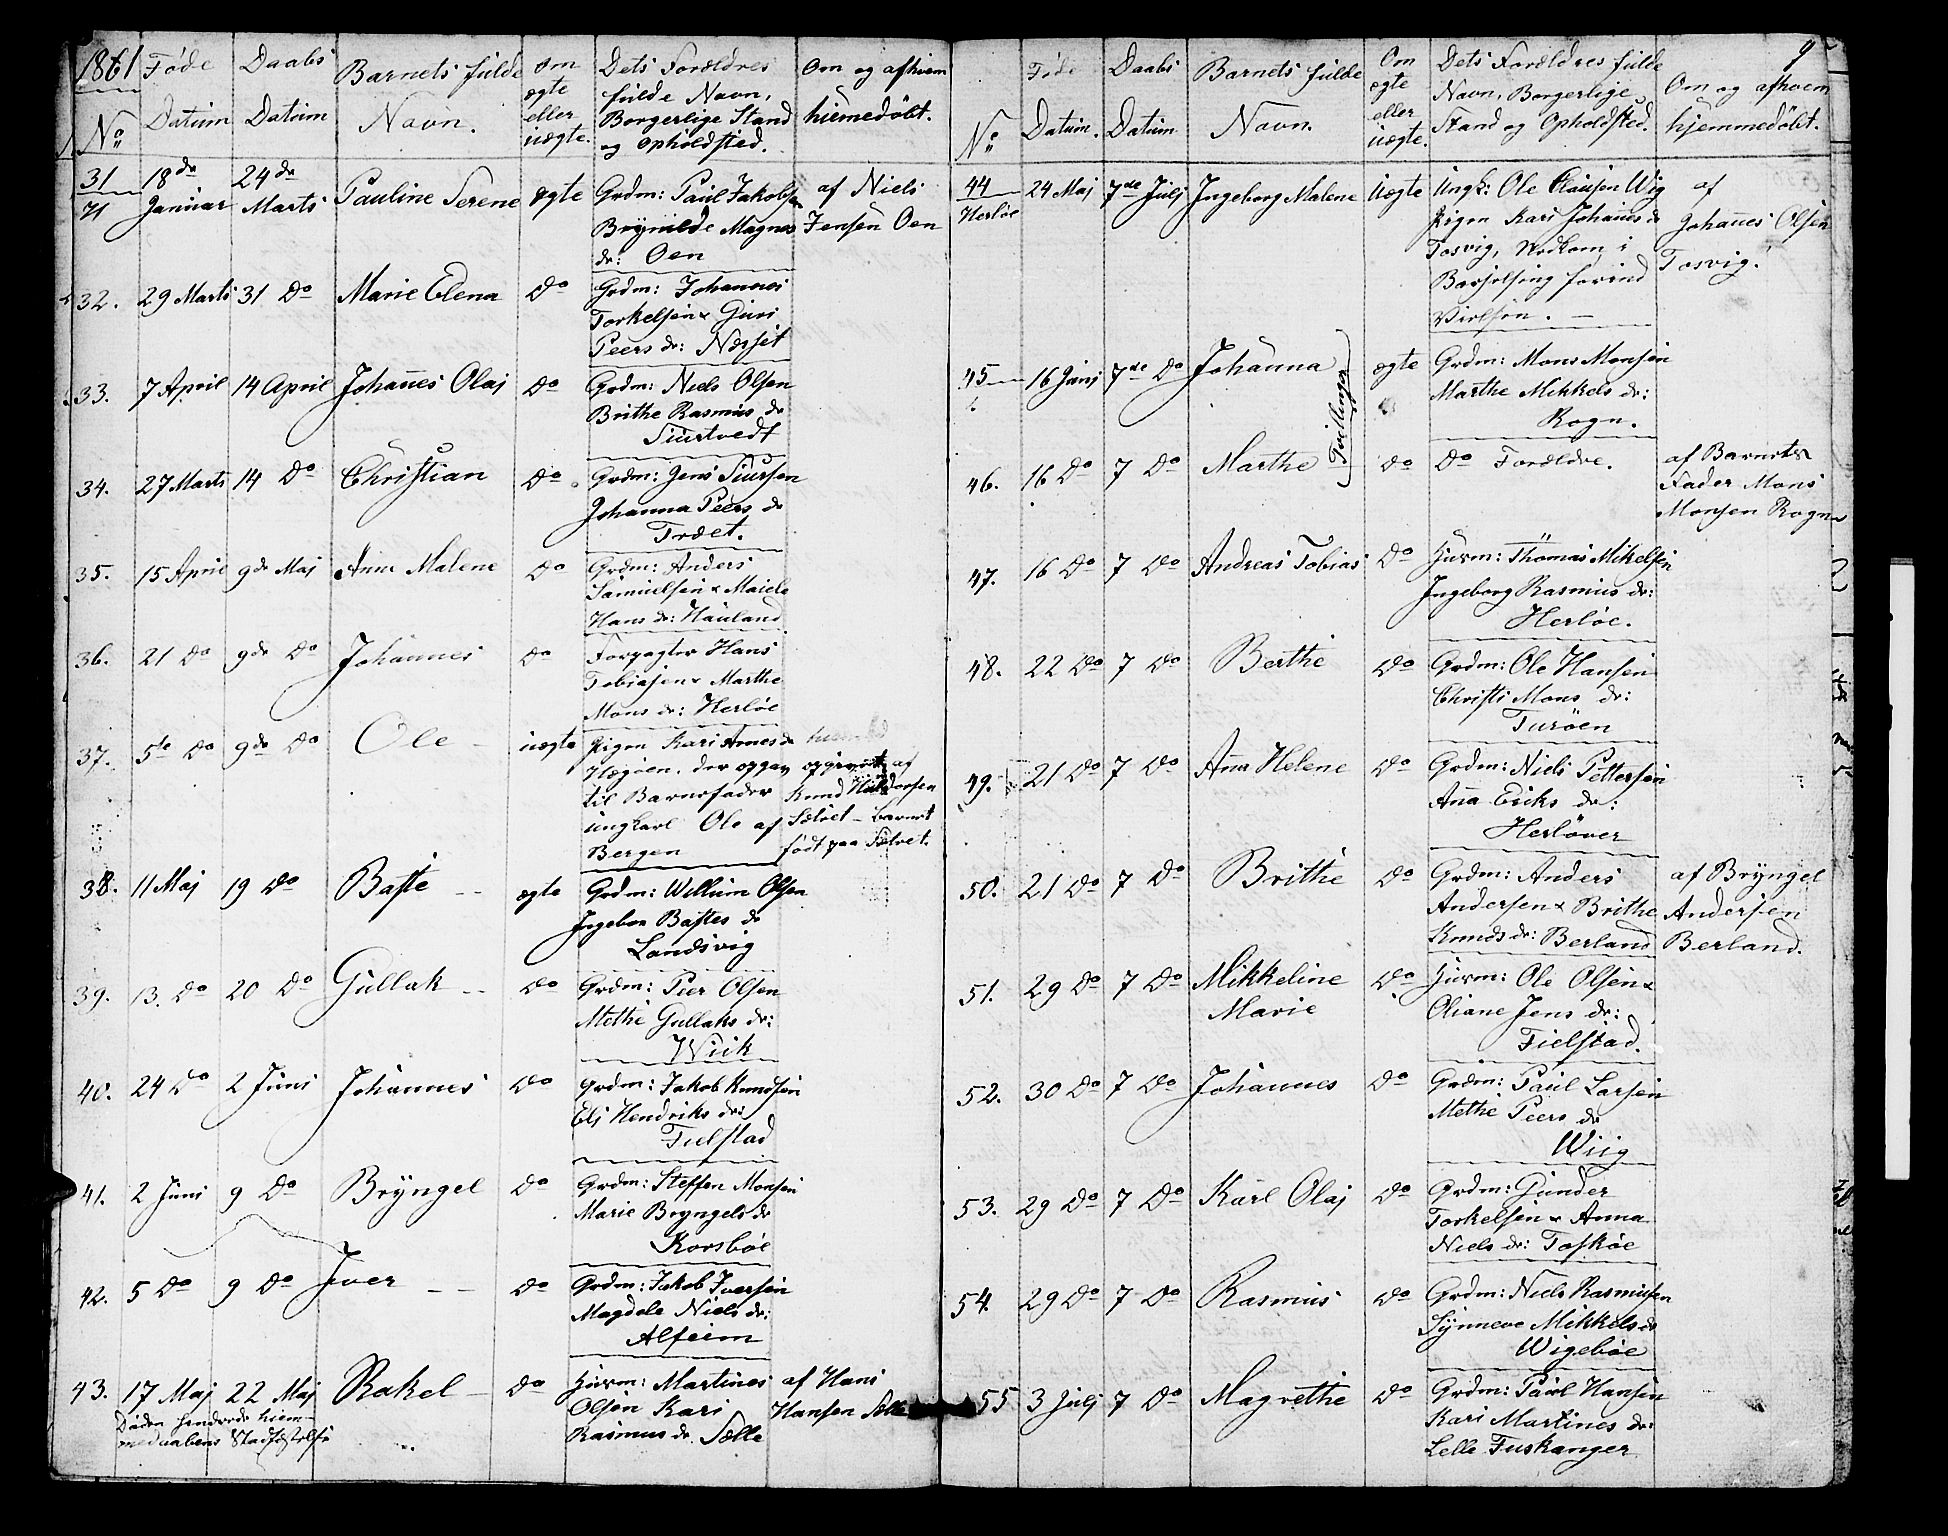 1861
Føde Datum
Daabs Datum
Barnets fulde Navn.
Om ægte eller uægte.
Dets Forældres fulde Navn, Borgerlige Stand og Opholdsted.
Om og afhvem hiemedøbt.
No
31
71
18de Januar
24de Marts
Pauline Serene
ægte
Grdm: Paul Jakobsen
Brynilde Magnes
dr: Oen
af Niels
Jensen Oen
32.
29 Marts
31 Do
Marie Elena
Do
Grdm: Johannes
Torkelsen & Guri
Peers dr: Næsset
33.
7 April
14 April
Johañes Olai
Do
Grdm: Niels Olsen
Brithe Rasmus dr
Siurtvedt
34.
27 Marts
14 Do
Christian
Do
Grdm: Jens Siursen
Johanna Peers dr
Træet.
35.
15 April
9de Maj
Anna Malene
Do
Grdm: Anders
Samuelsen & Maiele
Hans dr: Hauland
36.
21 Do
9de Do
Johannes
Do
Forpagter Hans
Tobiasen & Marthe
Mons dr: Herløe
37.
5te Do
9de Do
Ole
uægte
Pigen Kari Arnes dr
Hægøen. der opgav
til Barnefader
ungkarl Ole af
Bergen
opgivet af
Knud
Sætret - barnet
født paa Sætret.
38.
11 Maj
19 Do
Baste
ægte
Grdm: Willum Olsen
Ingebor Bastes dr
Landsvig
39.
13. Do
20 Do
Gullak
Do
Grdm: Peer Olsen
Methe Gullaks dr:
Wiik
40.
24 Do
2 Juni
Johannes
Do
Grdm: Jakob Knudsen
Eli Hendriks dr:
Fielstad
41.
2 Juni
9 Do
Bryngel
Do
Grdm: Steffen Monsen
Marie Bryngels dr
Korsbøe
42.
5 Do
9 Do
Iver
Do
Grdm: Jakob Iversen
Magdele Niels dr:
Alfeim
43.
17 Maj
22 Maj
Rakel
Do
Huusm: Martines
Olsen Kari
Rasmus dr Sælle
af Hans
Hansen Sælle
Døden hendrede hiem-
medaabens Stadfæstelse
9
No
Føde Datum.
Daabs Datum
Barnets fulde Navn.
Om ægte eller uægte.
Dets Forældres fulde Navn, Borgerlige Stand og Opholdsted.
Om og afhvem hjemmedøbt.
44
Herløe
24 Maj
7de Julj
Ingeborg Malene
Uægte
Ungk: Ole Clausen Wig
Pigen Kari Johañes dr
Tosvig,
af
Johañes Olsen
Tosvig.
45
16 Junj
7de Do
Johanna
Tvillinger
ægte
Grdm: Mons Monsen
Marthe Mikkels dr:
Rogn.
46.
16 Do
7 Do
Marthe
Do
Do Forældre.
af Barnets
Fader Mons
Monsen Rogn
47.
16 Do
7 Do
Andreas Tobias
Do
Huusm: Thomas Mikelsen
Ingeborg Rasmus dr:
Herløe.
48.
22 Do
7 Do
Berthe
Do
Grdm: Ole Hansen
Christi Mons dr:
Turøen
49.
21 Do
7 Do
Aña Helene
Do
Grdm: Niels Pettersen
Aña Eriks dr:
Herløver
50.
21 Do
7 Do
Brithe
Do
Grdm: Anders
Andersen & Brithe
Knuds dr: Berland
af Bryngel
Andersen
Berland.
51.
29 Do
7 Do
Mikkeline
Marie
Do
Huusm: Ole Olsen &
Oliane Jens dr:
Fielstad.
52.
30 Do
7 Do
Johannes
Do
Grdm: Paul Larsen
Methe Peers dr
Wiig
53.
29 Do
7 Do
Karl Olaj
Do
Grdm: Gunder
Torkelsen & Anna
Niels dr: Toskøe
54.
29 Do
7 Do
Rasmus
Do
Grdm: Niels Rasmusen
Synneve Mikkels dr
Wigebøe
55
3 Julj
7 Do
Magrethe
Do
Grdm: Paul Hansen
Kari Martines dr:
Lelle Tuskanger